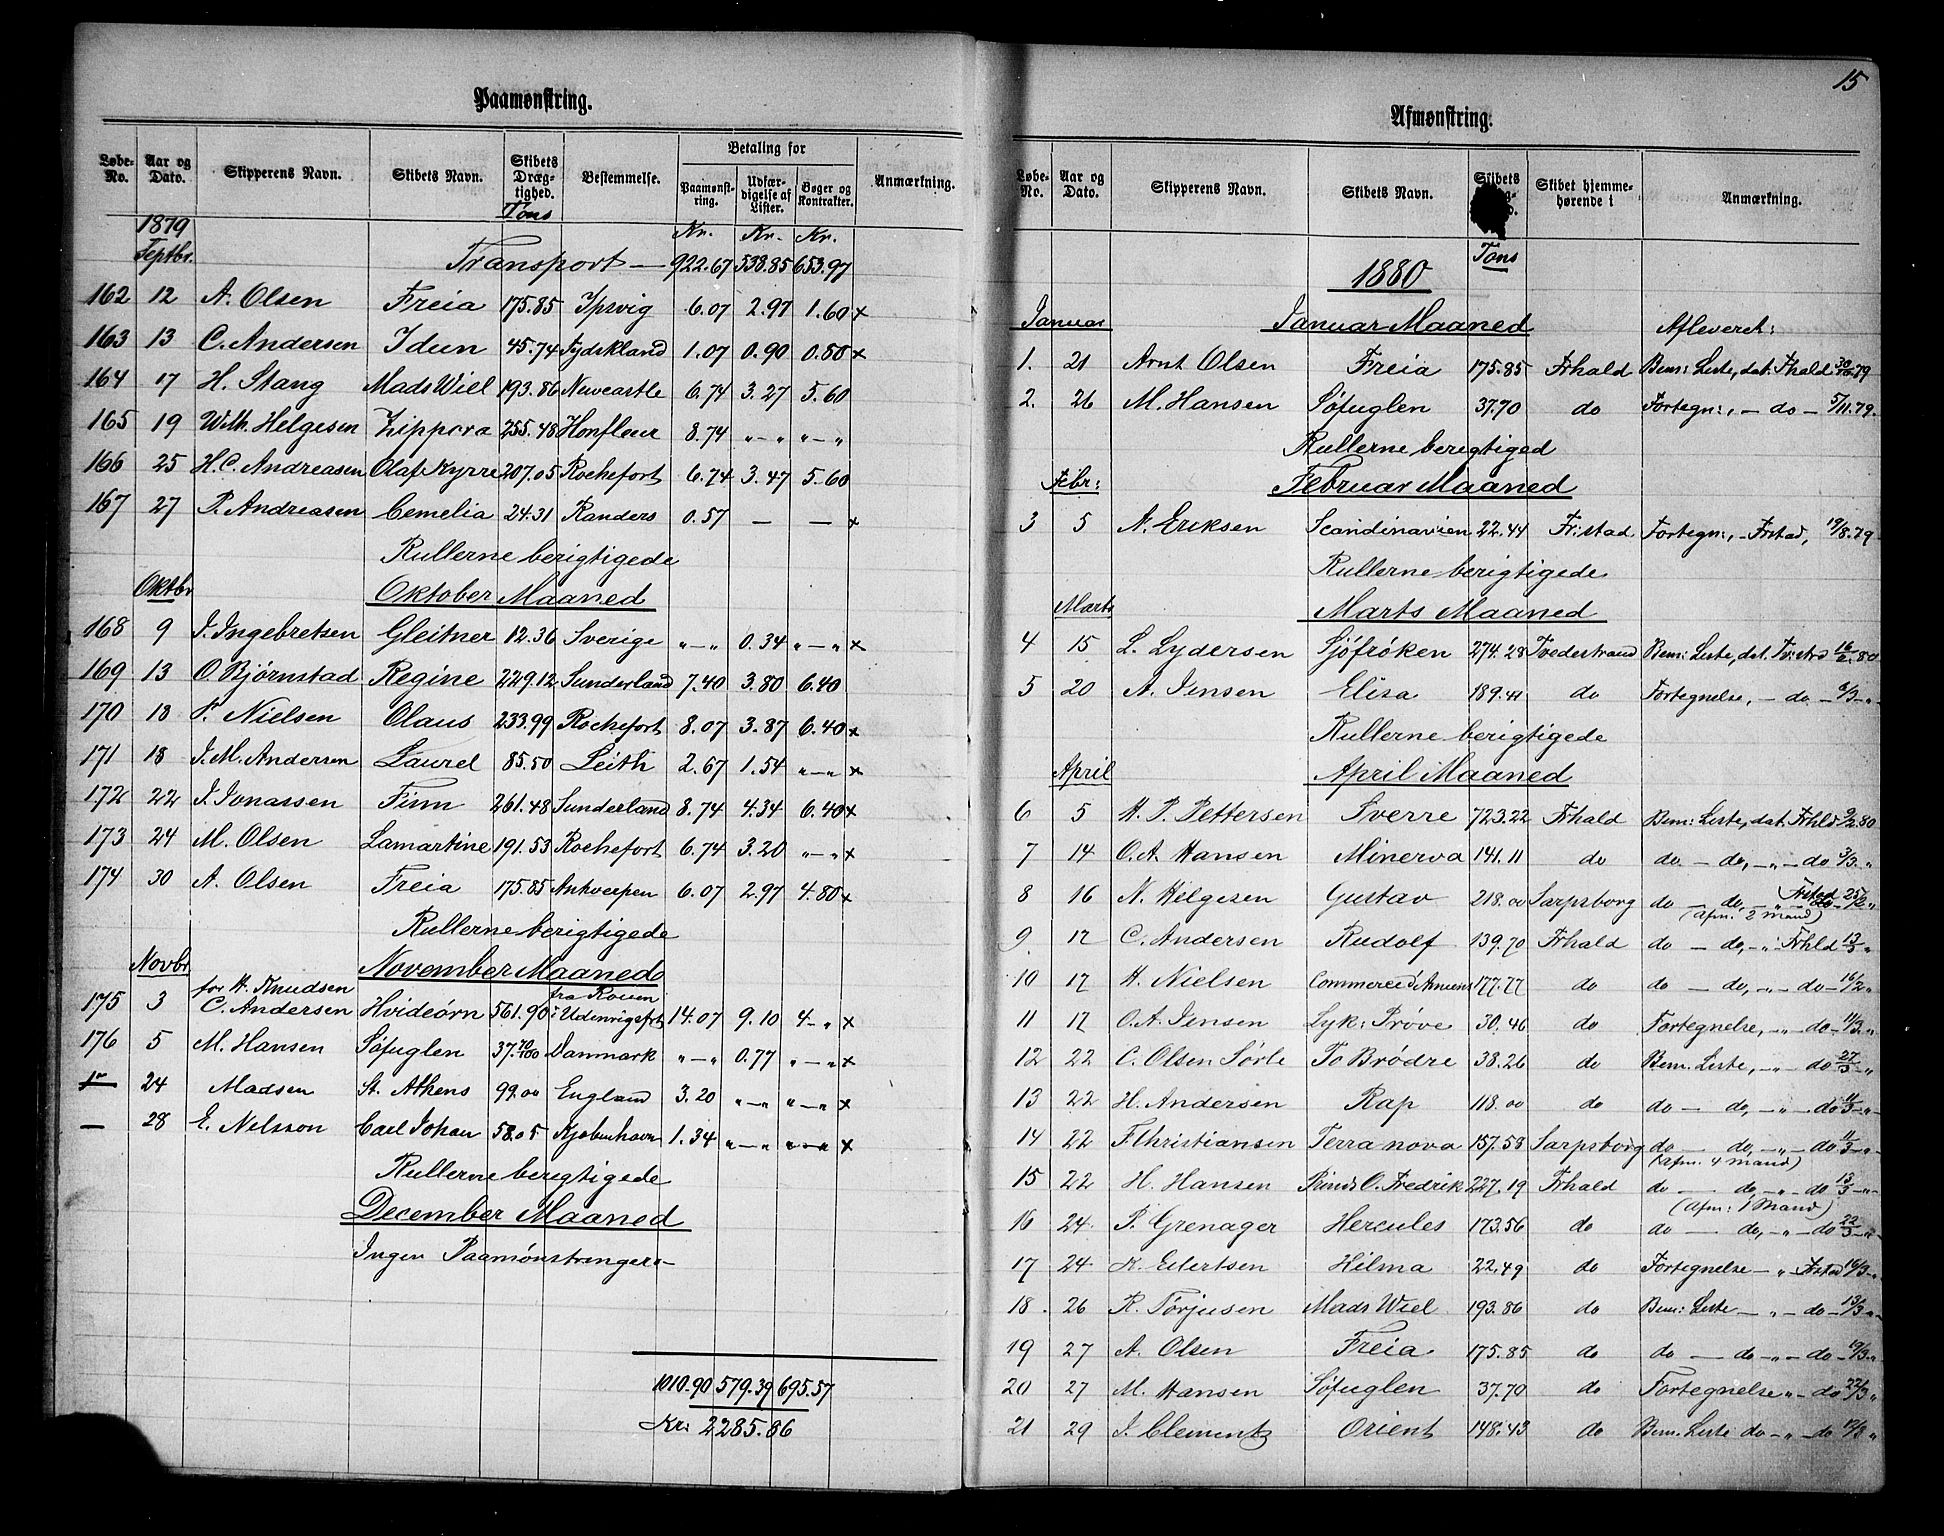 Paamønstring.
Løbe-No. Aar og Dato. Skipperens Navn. Skibets Navn. Skibets Dræg-tighed. Bestemmelse. Betaling for Paamønst-ring. Udfær-digelse af Lister. Bøger og Kontrakter. Anmærkning.
1879 Tons Kr. Kr. Kr.
Septbr. Transport — 922.67 538.85 653.97
162 12 A. Olsen Freia 175.85 Ipsvig 6.07 2.97 1.60 x
163 13 C. Andersen Idun 45.74 Tydskland 1.07 0.90 0.80 x
164 17 H. Stang Mads Wiel 193.86 Newcastle 6.74 3.27 5.60
165 19 Wilh. Helgesen Zippora 255.48 Honfleur 8.74 " — " " — "
166 25 H.C. Andreasen Olaf Kyrre 207.05 Rochefort 6.74 3.47 5.60
167 27 P. Andreasen Cemelia 24.31 Randers 0.57 — — x
Rullerne berigtigede
Oktbr Oktober Maaned
168 9 J. Ingebretsen Gleitner 12.36 Sverige " — " 0.34 " — " x
169 13 O. Bjørnstad Regine 229.12 Sunderland 7.40 3.80 6.40
170 18 F. Nielsen Olaus 233.99 Rochefort 8.07 3.87 6.40 x
171 18 J. M. Andersen Laurel 85.50 Leith 2.67 1.54 " — " x
172 22 J. Jonassen Finn 261.48 Sunderland 8.74 4.34 6.40 x
173 24 M. Olsen Lamartine 191.53 Rochefort 6.74 3.20 " — " x
174 30 A. Olsen Freia 175.85 Antwerpen 6.07 2.97 4.80 x
Rullerne berigtigede
Novbr November Maaned
for H. Knudsen fra Rouen
175 3 C. Andersen Hvideørn 561.90 i Udenrigsfrt 14.07 9.10 4 - " x
176 5 M. Hansen Søfuglen 37.70/100 Danmark " — " 0.77 " — " x
24 Madsen St. Athens 99.00 England 3.20 " — " " — " x
— 28 E. Nelsson Carl Johan 58.05 Kjøbenhavn 1.34 " — " " — " x
Rullerne berigtigede
December Maaned
Ingen Paamønstringer -
1010.90 579.39 695.57
Kr: 2285.86
15
Afmønstring.
Løbe-No. Aar og Dato. Skipperens Navn. Skibets Navn. Skibets Skibet hjemme-hørende i Anmærkning.
Tons
1880
Januar Januar Maaned Afleveret:
1. 21 Arnt Olsen Freia 175.85 Frhald Bem: Liste, dat. Fhald 30/10 79
2. 26 M. Hansen Søfuglen 37.70 do Fortegn:, — do — 5/11.79.
Rullerne berigtiged
Febr: Februar Maaned
3 5 N. Eriksen Scandinavien 22.44 Fr:stad Fortegn:, - Frstad, 19/8.79
Rullerne berigtigede
Marts Marts Maaned
4 15 L. Lydersen Sjøfrøken 274.28 Tvedestrand Bem: Liste, dat. Tv:strd 16/2.80
5 20 A. Jensen Elisa 189.41 do Fortegnelse, — do — 8/3 - " -
Rullerne berigtigede
April April Maaned
6 5 H. P. Pettersen Sverre 723.22 Frhald Bem: Liste, dat. Frhld 9/2 80
7 14 O.A. Hansen Minerva 141.11 do do — do, — " — do 3/3. "
8 16 N. Helgesen Gustav 218.00 Sarpsborg do — do, — " Frstad 25/2 "
(Afm. 2 Mand)
9 17 C. Andersen Rudolf 139.70 Frhald do — do, — " Frhld 13/3 "
10 17 H. Nielsen Commerce d'Amiens 177.77 do do — do, — " — do — 16/2 "
11 17 O.A. Jensen Lyk: Prøve 30.46 do Fortegnelse, — " — do — 11/3 - "
12 22 C. Olsen Sørle To Brødre 38.26 do Bem. Liste, — " — do 27/3 - "
13 22 H. Andersen Rap 118.00 do do — do, — " — do 11/3 - "
14 22 F Christiansen Terra nova 157.58 Sarpsborg do — do, — " — do 11/3 - " -
(Afm. 4 Mand)
15 22 H. Hansen Prinds O. Fredrik 227.19 Frhald do — do, — " — do 13/3 - " -
(Afm: 1 Mand)
16 24 P. Grenager Hercules 173.56 do do — do, — " — do 22/3 - " -
17 24 K. Eilertsen Hilma 22.49 do Fortegnelse — " Frstad 16/3 - "
18. 26 R. Torjusen Mads Wiel 193.86 do Bem: Liste — " — do — 13/3 - " -
19 27 A. Olsen Freia 175.85 do do — do — " — do 19/3 - "
20 27 M. Hansen Søfuglen 37.70 do Fortegnelse " — do 22/3 "
21 29 J. Clementz Orient 148.43 do Bem. Liste do — " — do 12/3 "